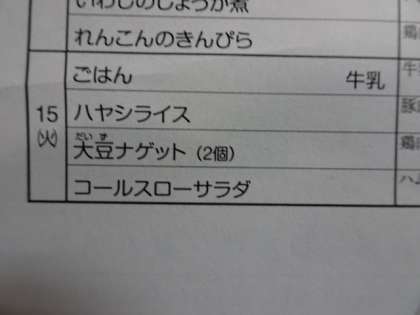 いわしのしょうが煮
れんこんのきんぴら
鶏
ごはん 牛乳
牛
15
(火)
ハヤシライス
豚
だいず
大豆ナゲット (2個)
鶏
コールスローサラダ
ハム